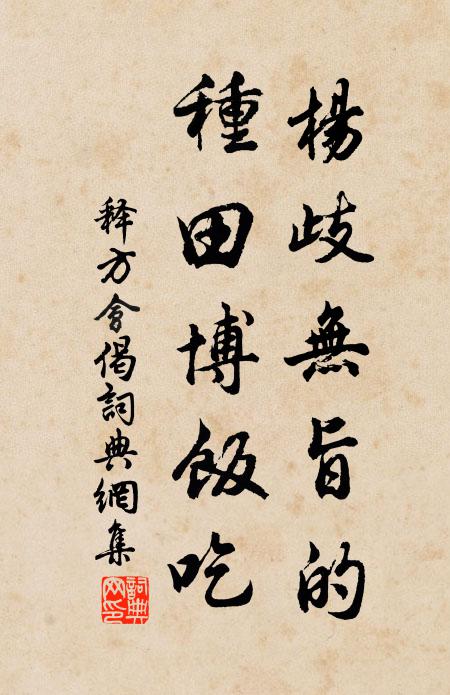 楊歧無旨的
種田博飯吃
释方會偈詞典網集
詞典网印